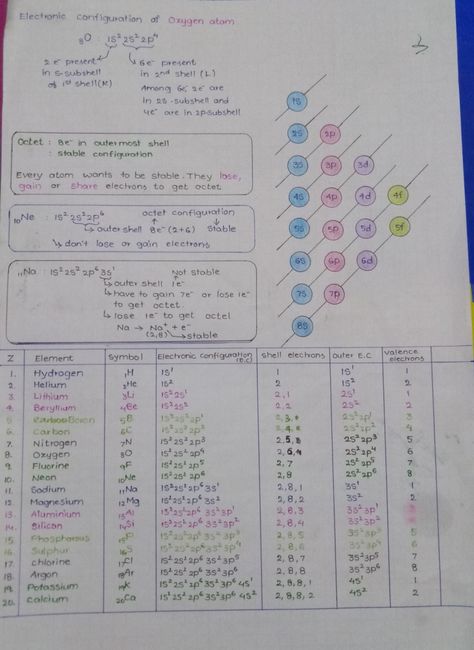 Electronic configuration of Oxygen atom
₈O : 1s² 2s² 2p⁴
2e⁻ present in s-subshell of 1st shell (K)
6e⁻ present in 2nd shell (L)
Among 6, 2e⁻ are in 2s-subshell and 4e⁻ are in 2p subshell
3
1s
2s 2p
3s 3p 3d
4s 4p 4d 4f
5s 5p 5d 5f
6s 6p 6d
7s 7p
8s
Octet : 8e⁻ in outermost shell
: stable configuration
Every atom wants to be stable. They lose,
gain or share electrons to get octet
₁₀Ne : 1s² 2s² 2p⁶ octet configuration
outer shell 8e⁻ (2+6) stable
don't lose or gain electrons
₁₁Na : 1s² 2s² 2p⁶ 3s¹ Not stable
outer shell 1e⁻
have to gain 7e⁻ or lose 1e⁻
to get octet
lose 1e⁻ to get octet
Na → Na⁺ + e⁻
(2,8) stable
Z Element Symbol Electronic configuration (E.C) Shell electrons Outer E.C Valence electrons
1. Hydrogen ₁H 1s¹ 1 1s¹ 1
2. Helium ₂He 1s² 2 1s² 2
3. Lithium ₃Li 1s² 2s¹ 2,1 2s¹ 1
4. Beryllium ₄Be 1s² 2s² 2,2 2s² 2
5. Boron ₅B 1s² 2s² 2p¹ 2,3 2s² 2p¹ 3
6. Carbon ₆C 1s² 2s² 2p² 2,4 2s² 2p² 4
7. Nitrogen ₇N 1s² 2s² 2p³ 2,5 2s² 2p³ 5
8. Oxygen ₈O 1s² 2s² 2p⁴ 2,6 2s² 2p⁴ 6
9. Fluorine ₉F 1s² 2s² 2p⁵ 2,7 2s² 2p⁵ 7
10. Neon ₁₀Ne 1s² 2s² 2p⁶ 2,8 2s² 2p⁶ 8
11. Sodium ₁₁Na 1s² 2s² 2p⁶ 3s¹ 2,8,1 3s¹ 1
12. Magnesium ₁₂Mg 1s² 2s² 2p⁶ 3s² 2,8,2 3s² 2
13. Aluminium ₁₃Al 1s² 2s² 2p⁶ 3s² 3p¹ 2,8,3 3s² 3p¹ 3
14. Silicon ₁₄Si 1s² 2s² 2p⁶ 3s² 3p² 2,8,4 3s² 3p²
15. Phosphorous ₁₅P 1s² 2s² 2p⁶ 3s² 3p³ 2,8,5 3s² 3p³ 5
16. Sulphur ₁₆S 1s² 2s² 2p⁶ 3s² 3p⁴ 2,8,6 3s² 3p⁴ 6
17. chlorine ₁₇Cl 1s² 2s² 2p⁶ 3s² 3p⁵ 2,8,7 3s² 3p⁵ 7
18. Argon ₁₈Ar 1s² 2s² 2p⁶ 3s² 3p⁶ 2,8,8 3s² 3p⁶ 8
19. Potassium ₁₉K 1s² 2s² 2p⁶ 3s² 3p⁶ 4s¹ 2,8,8,1 4s¹ 1
20. Calcium ₂₀Ca 1s² 2s² 2p⁶ 3s² 3p⁶ 4s² 2,8,8,2 4s² 2